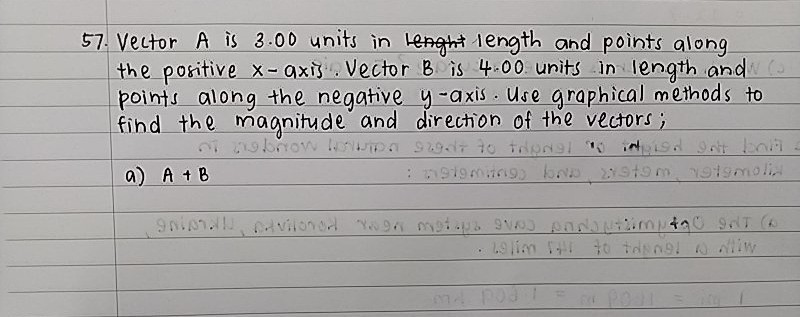 57. Vector A is 3.00 units in lenght length and points along
the positive x-axis. Vector B is 4.00 units in length and
points along the negative y-axis. Use graphical methods to
find the magnitude and direction of the vectors;
a) A + B